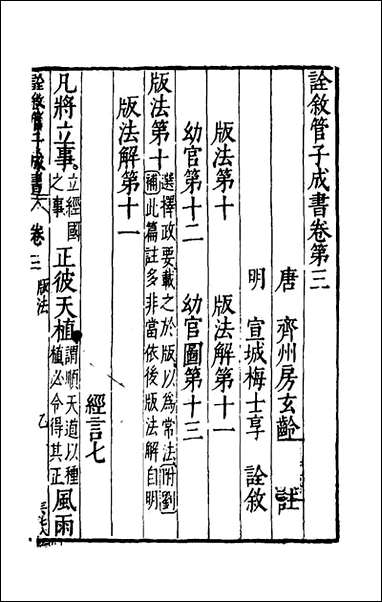 詮敘管子成書卷第三
唐 齊州房玄齡 註
明 宣城梅士享 詮敘
版法第十 版法解第十一
幼官第十二 幼官圖第十三
版法第十 選擇政要載之於版以爲常法附劉
補此篇註多非當依後版法解自明
版法解第十一
經言七
凡將立事 立經國之事 正彼天植 謂順天道以種植必令得其正 風雨
詮敘管子成書 卷三 版法 乙